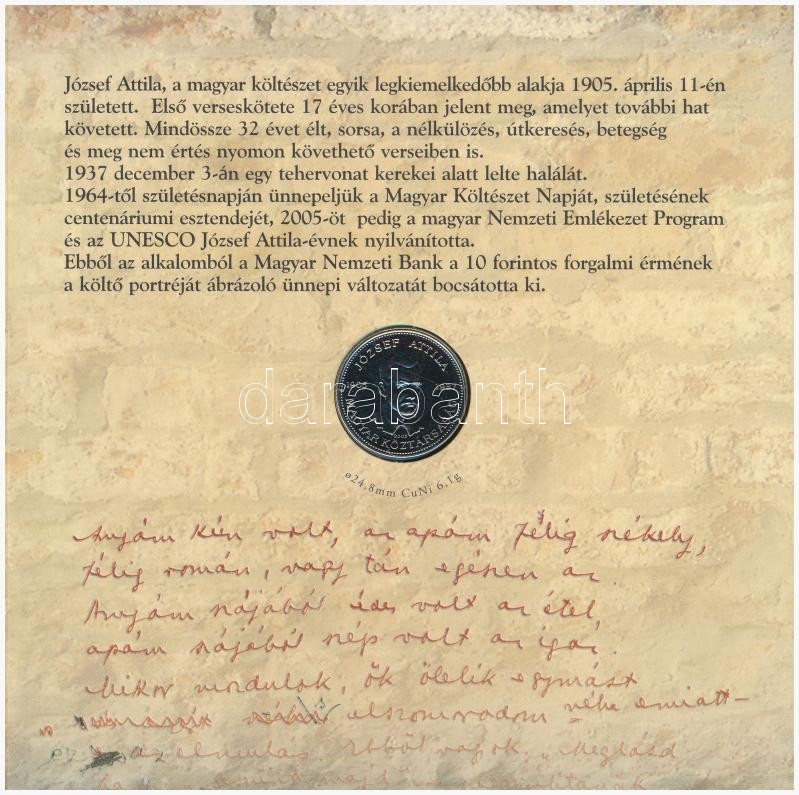 József Attila, a magyar költészet egyik legkiemelkedőbb alakja 1905. április 11-én
született. Első verseskötete 17 éves korában jelent meg, amelyet további hat
követett. Mindössze 32 évet élt, sorsa, a nélkülözés, útkeresés, betegség
és meg nem értés nyomon követhető verseiben is.
1937 december 3-án egy tehervonat kerekei alatt lelte halálát.
1964-től születésnapján ünnepeljük a Magyar Költészet Napját, születésének
centenáriumi esztendejét, 2005-öt pedig a magyar Nemzeti Emlékezet Program
és az UNESCO József Attila-évnek nyilvánította.
Ebből az alkalomból a Magyar Nemzeti Bank a 10 forintos forgalmi érmének
a költő portréját ábrázoló ünnepi változatát bocsátotta ki.
JÓZSEF ATTILA
darabanth
2005
MAGYAR KÖZTÁRSASÁG
ø24,8mm CuNi 6,1g
Anyám kún volt, az apám félig székely,
félig román, vagy tán egészen az.
Anyám szájából édes volt az étel,
apám szájából szép volt az igaz.
Mikor mozdulok, ők ölelik egymást
elszomorodom néha emiatt -
ez az elmulás. Ebből vagyok. „Meglásd